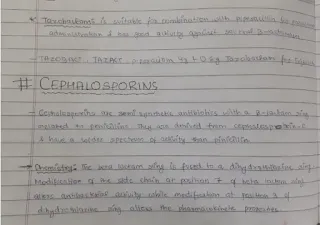 * Tazobactam is suitable for combination with piperacillin for
administration & has good activity against
TAZOBID: TAZACT:
# CEPHALOSPORINS
- Cephalosporins are semi synthetic antibiotics with a β-lactam ring
related to penicillin. They are derived from cephalosporin-C
& have a wider spectrum of activity than penicillin
→ Chemistry: The beta lactam ring is fused to a dihydrothiazine ring
Modification of the side chain at position 7 of beta lactam ring
alters antibacterial activity while modification at position 3 of
dihydrothiazine ring alters the pharmacokinetic properties